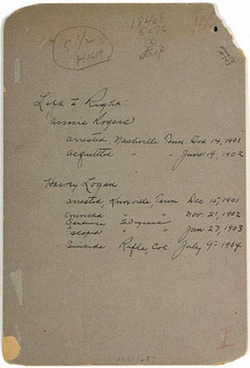 5 1/2
HIGH
Left to Right:
Annie Rogers
arrested Nashville Tenn Oct 14, 1901
acquitted " " June 19, 1902
Harvey Logan
arrested, Knoxville, Tenn Dec. 15, 1901
Convicted " " Nov. 21, 1902
Sentence 20 years
Escaped " " Jan 27, 1903
Suicide Rifle, Col July 9- 1904